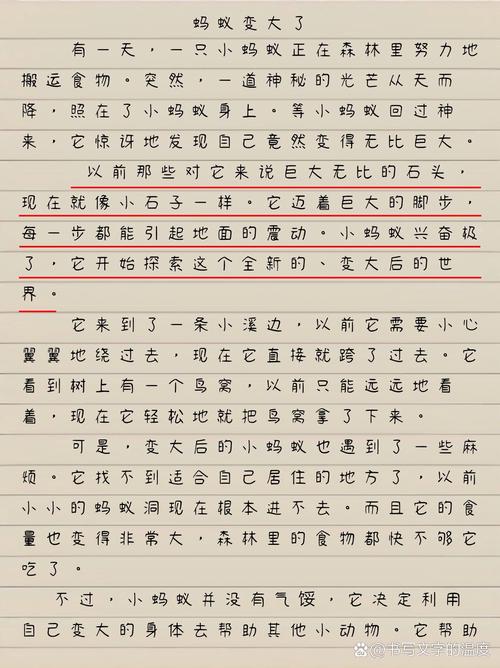 蚂蚁变大了
有一天，一只小蚂蚁正在森林里努力地
搬运食物。突然，一道神秘的光芒从天而
降，照在了小蚂蚁身上。等小蚂蚁回过神
来，它惊讶地发现自己竟然变得无比巨大。
以前那些对它来说巨大无比的石头，
现在就像小石子一样。它迈着巨大的脚步，
每一步都能引起地面的震动。小蚂蚁兴奋极
了，它开始探索这个全新的、变大后的世
界。
它来到了一条小溪边，以前它需要小心
翼翼地绕过去，现在它直接就跨了过去。它
看到树上有一个鸟窝，以前只能远远地看
着，现在它轻松地就把鸟窝拿了下来。
可是，变大后的小蚂蚁也遇到了一些麻
烦。它找不到适合自己居住的地方了，以前
小小的蚂蚁洞现在根本进不去。而且它的食
量也变得非常大，森林里的食物都快不够它
吃了。
不过，小蚂蚁并没有气馁，它决定利用
自己变大的身体去帮助其他小动物。它帮助
Bai百家号/书写文字的温度